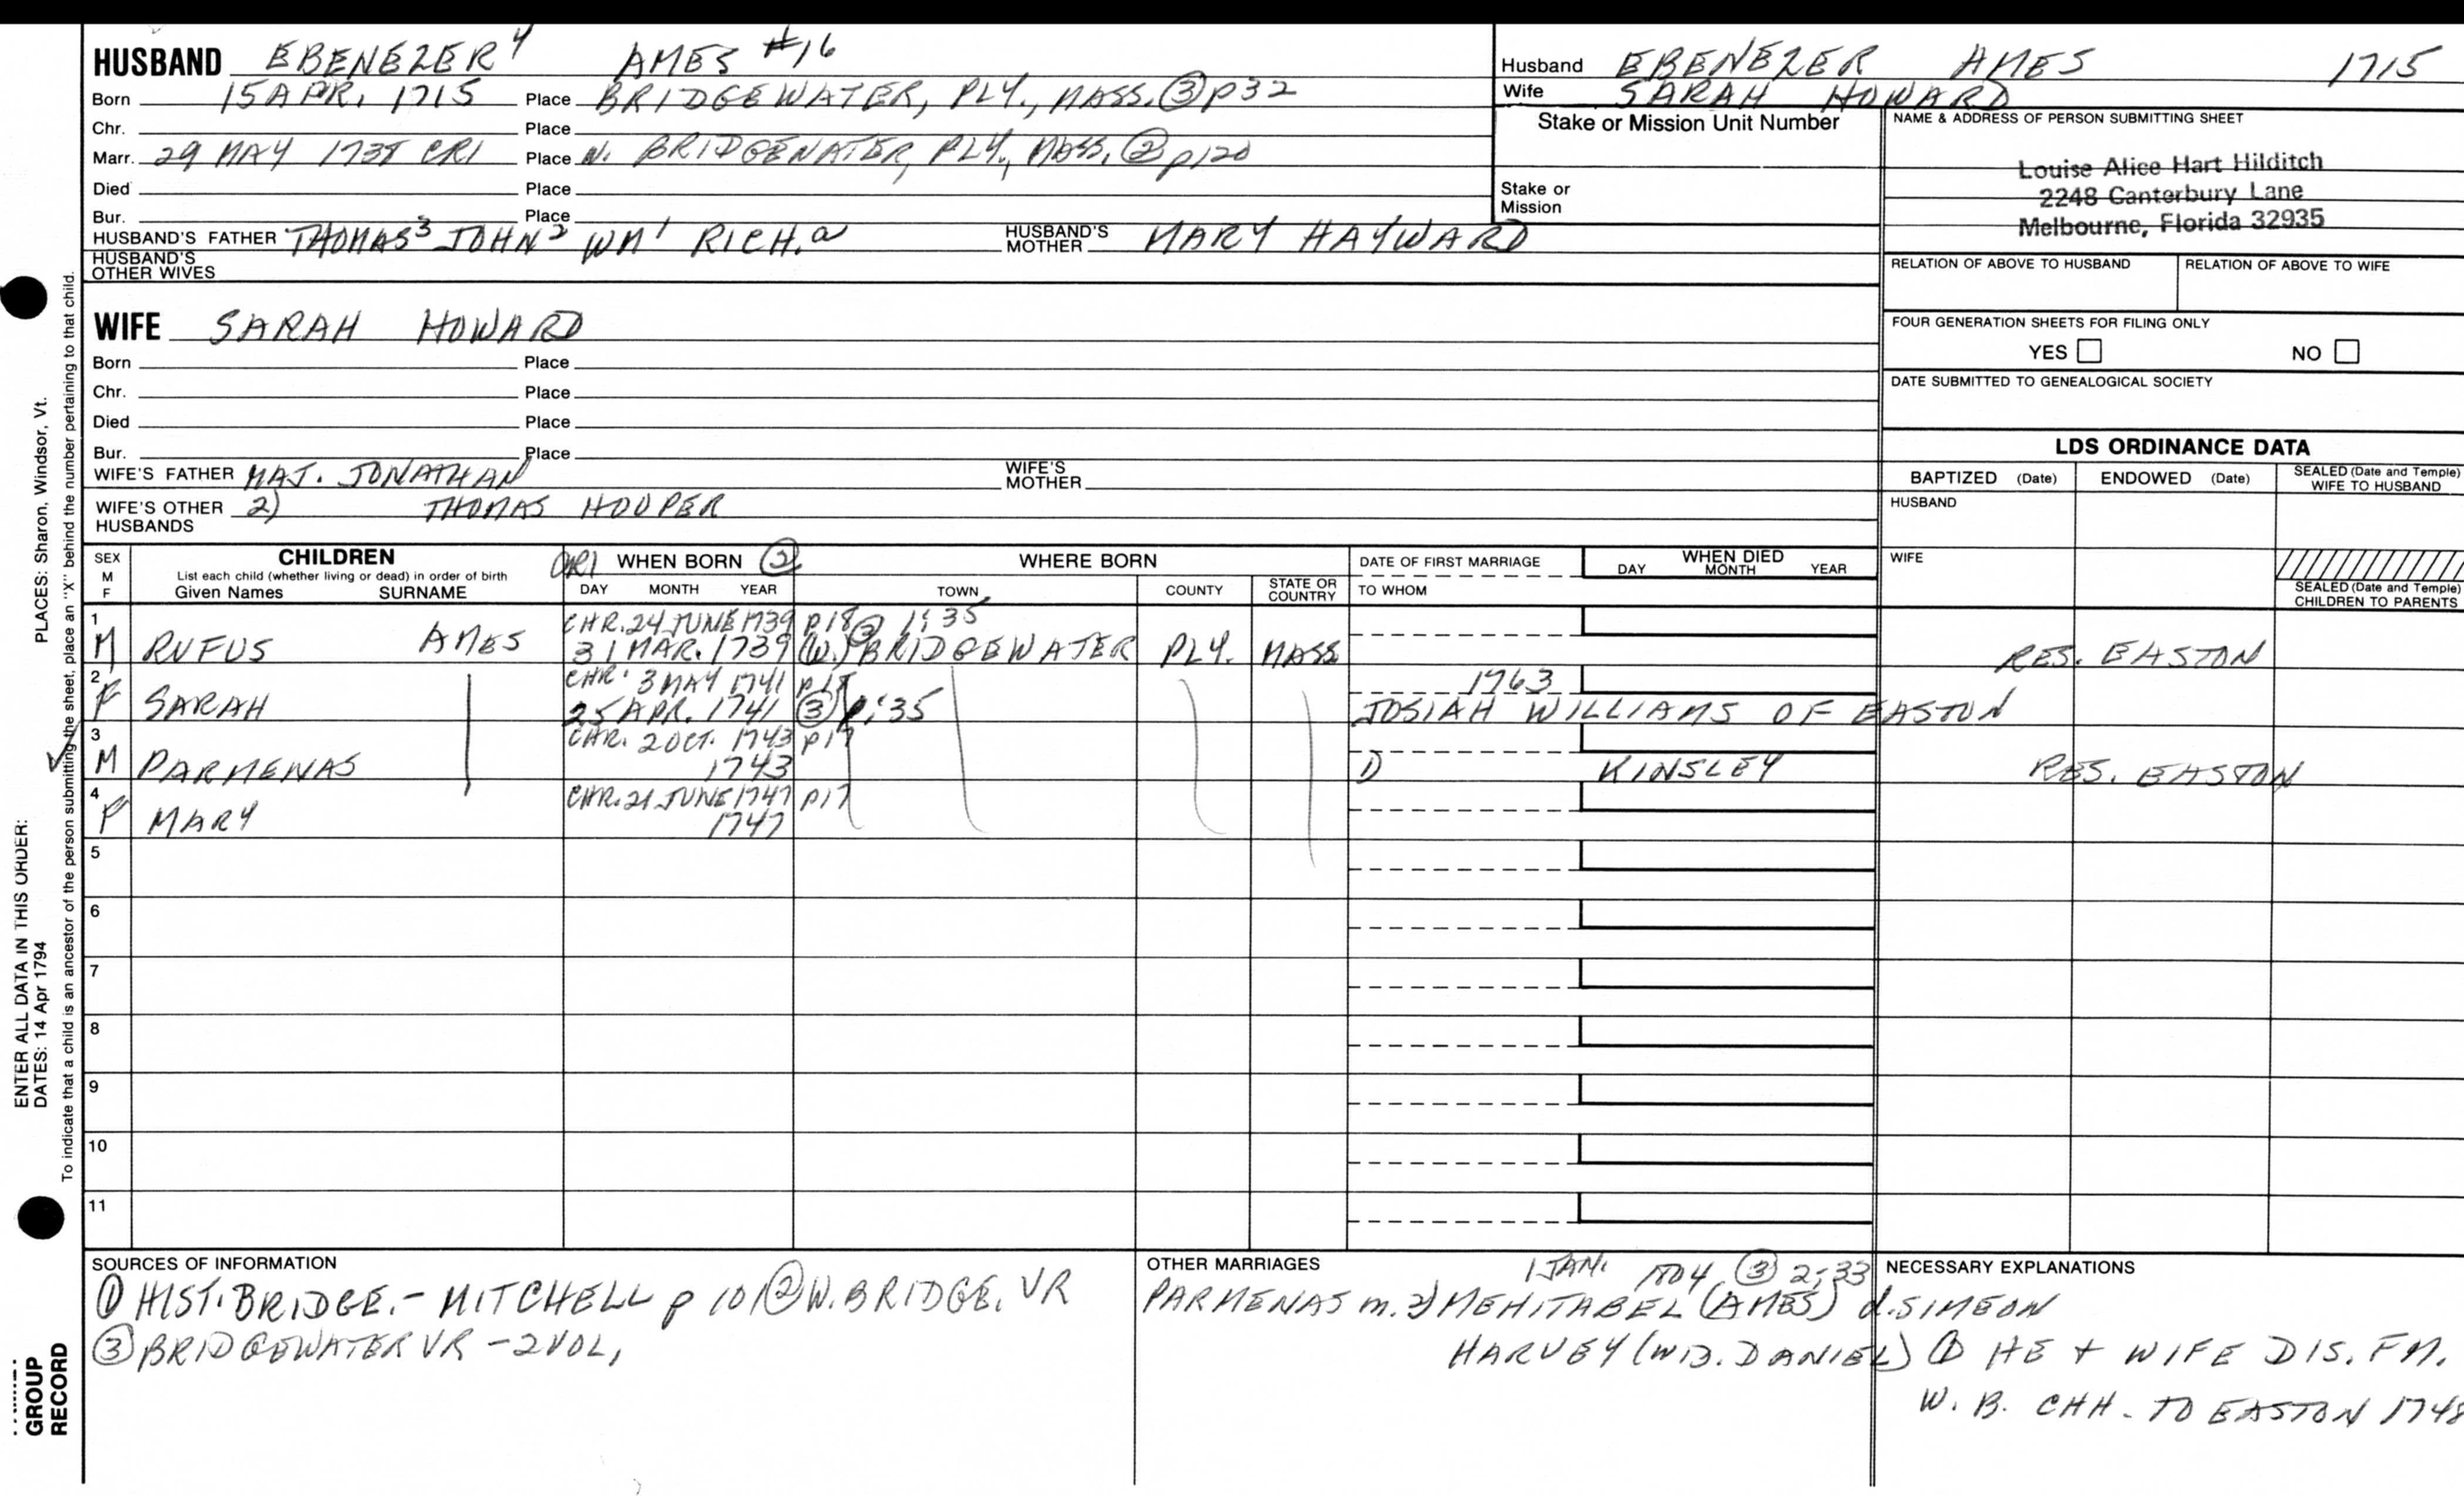 HUSBAND EBENEZER 4 AMES #16
Born 15 APR. 1715 Place BRIDGEWATER, PLY., MASS. ③ p32
Chr. Place
Marr. 29 MAY 1738 CR1 Place N. BRIDGEWATER, PLY., MASS. ② p120
Died Place
Bur. Place
HUSBAND'S FATHER THOMAS 3 JOHN 2 WM 1 RICH. a HUSBAND'S MOTHER MARY HAYWARD
HUSBAND'S OTHER WIVES
Husband EBENEZER AMES 1715
Wife SARAH HOWARD
Stake or Mission Unit Number
Stake or Mission
NAME & ADDRESS OF PERSON SUBMITTING SHEET
Louise Alice Hart Hilditch
2248 Canterbury Lane
Melbourne, Florida 32935
RELATION OF ABOVE TO HUSBAND RELATION OF ABOVE TO WIFE
FOUR GENERATION SHEETS FOR FILING ONLY
YES NO
DATE SUBMITTED TO GENEALOGICAL SOCIETY
WIFE SARAH HOWARD
Born Place
Chr. Place
Died Place
Bur. Place
WIFE'S FATHER MAJ. JONATHAN WIFE'S MOTHER
WIFE'S OTHER HUSBANDS 2) THOMAS HOOPER
LDS ORDINANCE DATA
BAPTIZED (Date) ENDOWED (Date) SEALED (Date and Temple) WIFE TO HUSBAND
HUSBAND
WIFE
SEALED (Date and Temple) CHILDREN TO PARENTS
SEX M F CHILDREN
List each child (whether living or dead) in order of birth
Given Names SURNAME
CR1 WHEN BORN ②
DAY MONTH YEAR
WHERE BORN
TOWN COUNTY STATE OR COUNTRY
DATE OF FIRST MARRIAGE
TO WHOM
WHEN DIED
DAY MONTH YEAR
1 CHR. 24 JUNE 1739 p18 ③ 1:35
M RUFUS AMES 31 MAR. 1739 (W.) BRIDGEWATER PLY. MASS RES. EASTON
2 CHR. 3 MAY 1741 p18 1763
F SARAH 25 APR. 1741 ③ 1:35 JOSIAH WILLIAMS OF EASTON
3 CHR. 2 OCT. 1743 p17
M PARMENAS 1743 ① KINSLEY RES. EASTON
4 CHR. 21 JUNE 1747 p17
F MARY 1747
5
6
7
8
9
10
11
SOURCES OF INFORMATION
① HIST. BRIDGE. - MITCHELL p 101 ② W. BRIDGE. VR
③ BRIDGEWATER VR - 2 VOL,
OTHER MARRIAGES 1 JAN. ③ 2:33
PARMENAS m. 2) MEHITABEL (AMES) d. SIMEON
HARVEY (WD. DANIEL)
NECESSARY EXPLANATIONS
① HE + WIFE DIS. FM.
W. B. CHH. TO EASTON 1748
PLACES: Sharon, Windsor, Vt.
To indicate that a child is an ancestor of the person submitting the sheet, place an "X" behind the number pertaining to that child.
ENTER ALL DATA IN THIS ORDER:
DATES: 14 Apr 1794
GROUP
RECORD